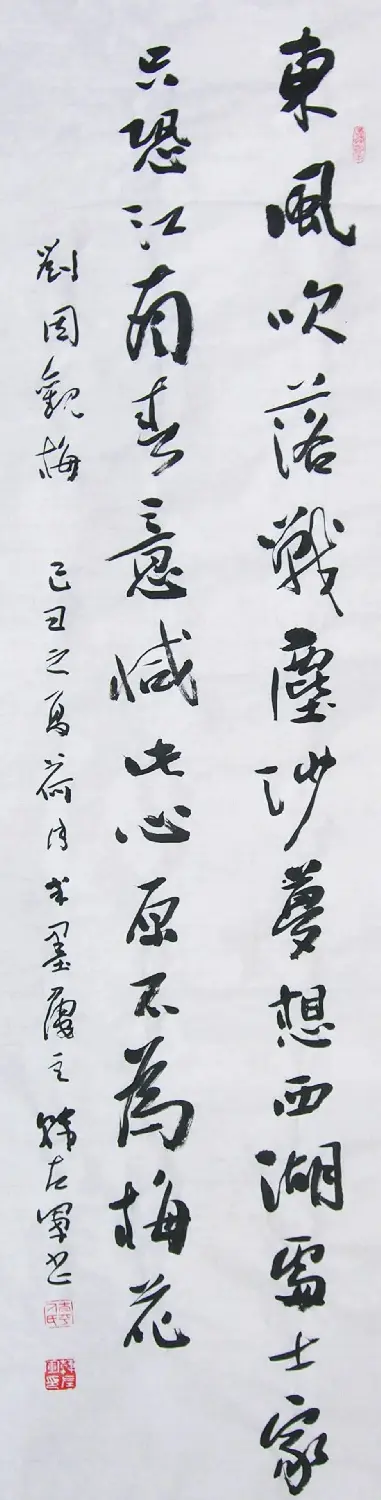 東風吹落戰塵沙夢想西湖處士家
只恐江南春意減此心原不為梅花
劉因觀梅 己丑之夏荷月墨廬主韓左軍書